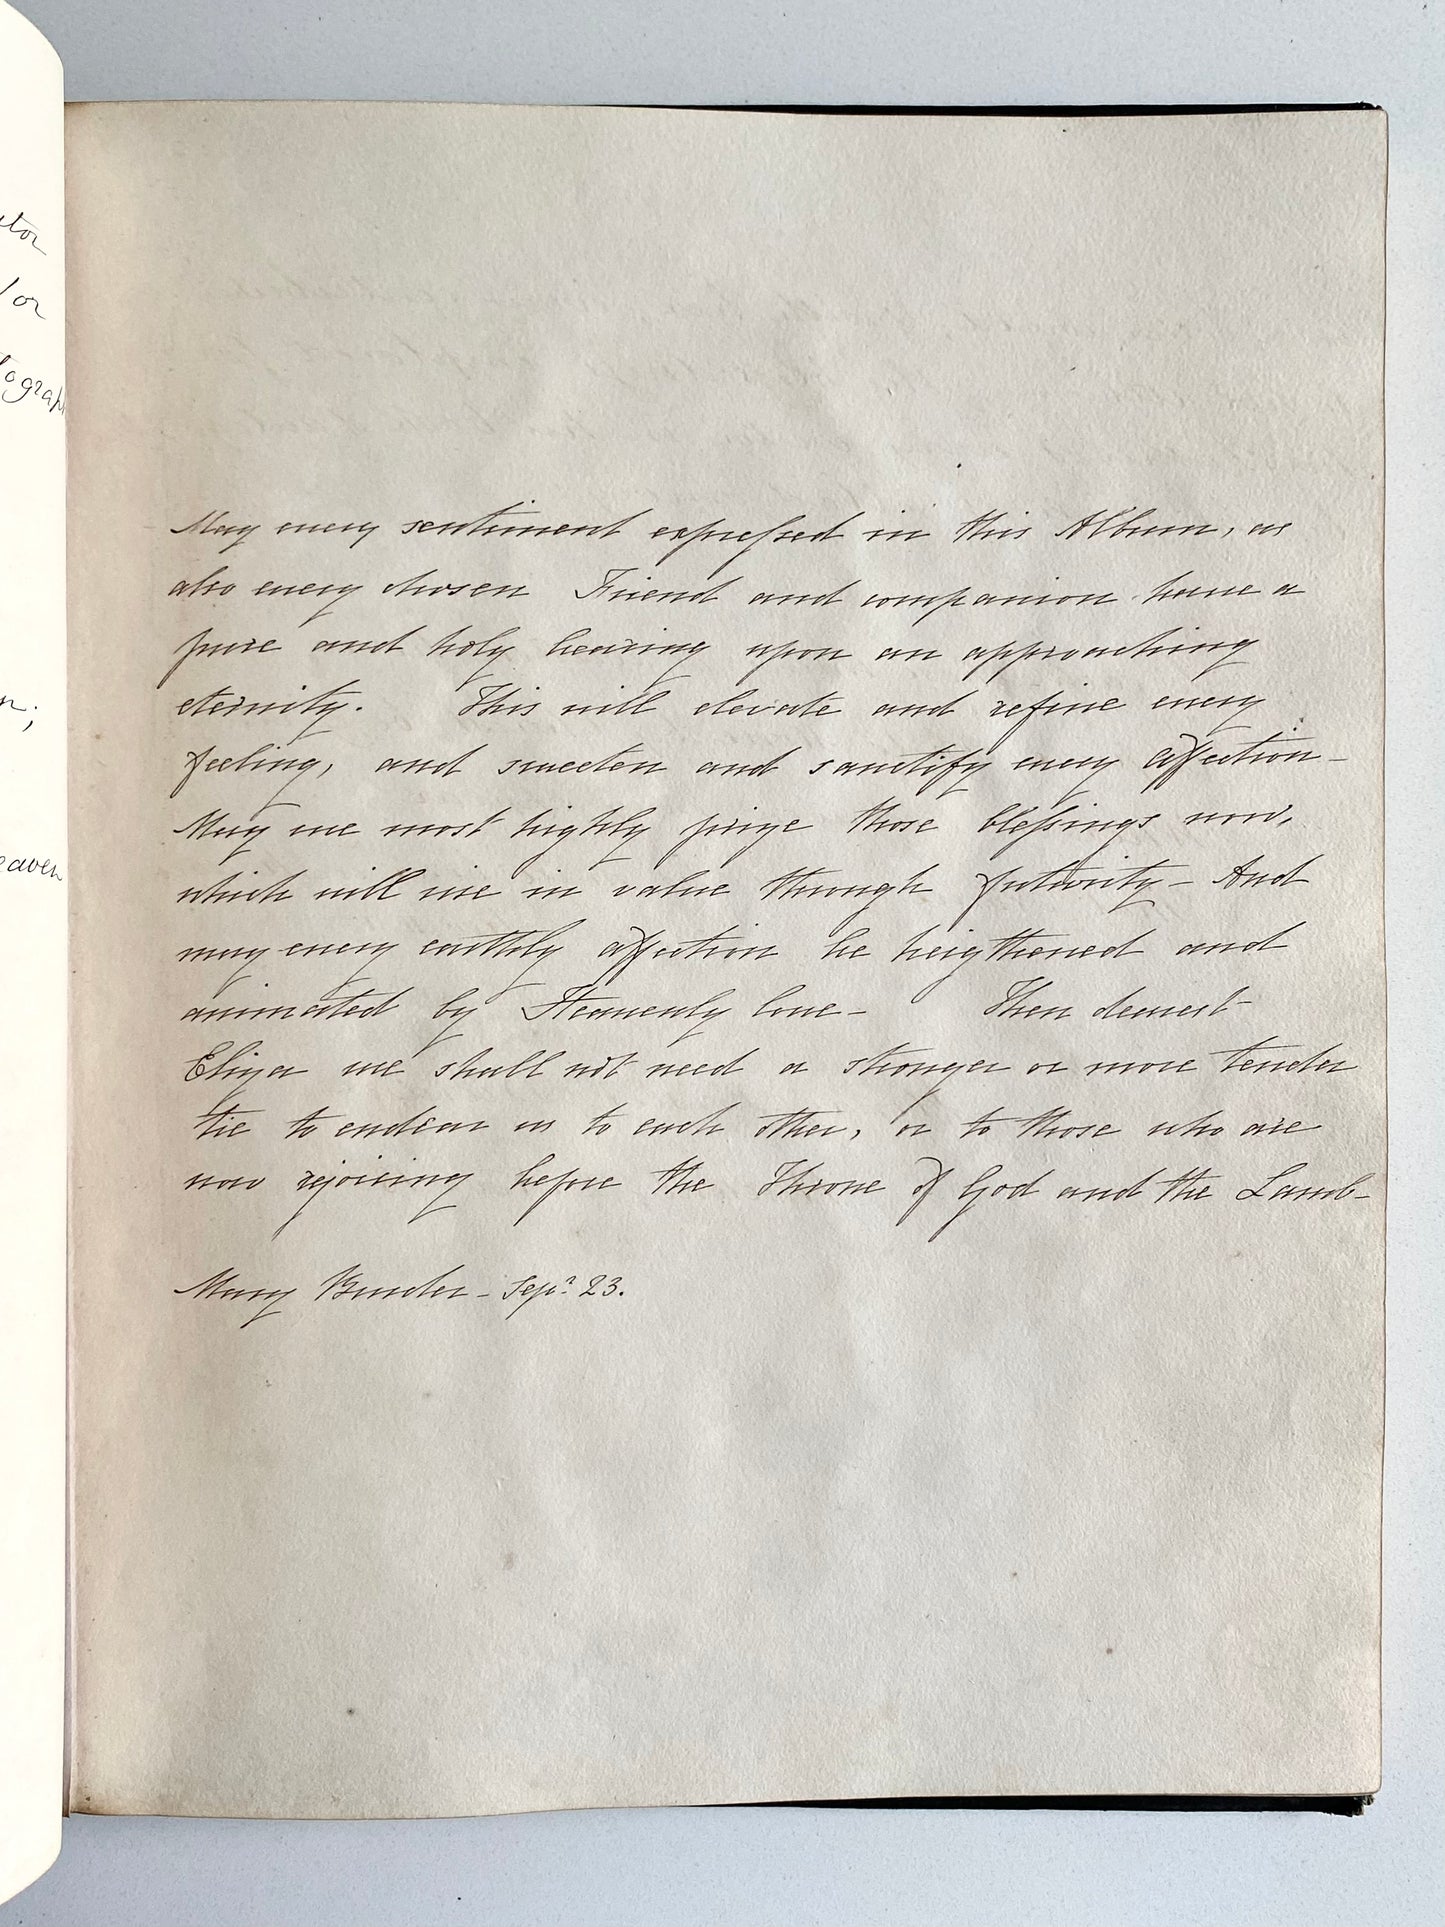 tor
/or
tograph
n;
eaven
May every sentiment expressed in this Album, as
also every chosen Friend and companion have a
pure and holy bearing upon an approaching
eternity. This will elevate and refine every
feeling, and sweeten and sanctify every affection—
May we most highly prize those blessings now,
which will rise in value through futurity— And
may every earthly affection be heigthened and
animated by Heavenly love— Then dearest
Eliza we shall not need a stronger or more tender
tie to endear us to each other, or to those who are
now rejoicing before the Throne of God and the Lamb—
Mary Burder— Sepr. 23.